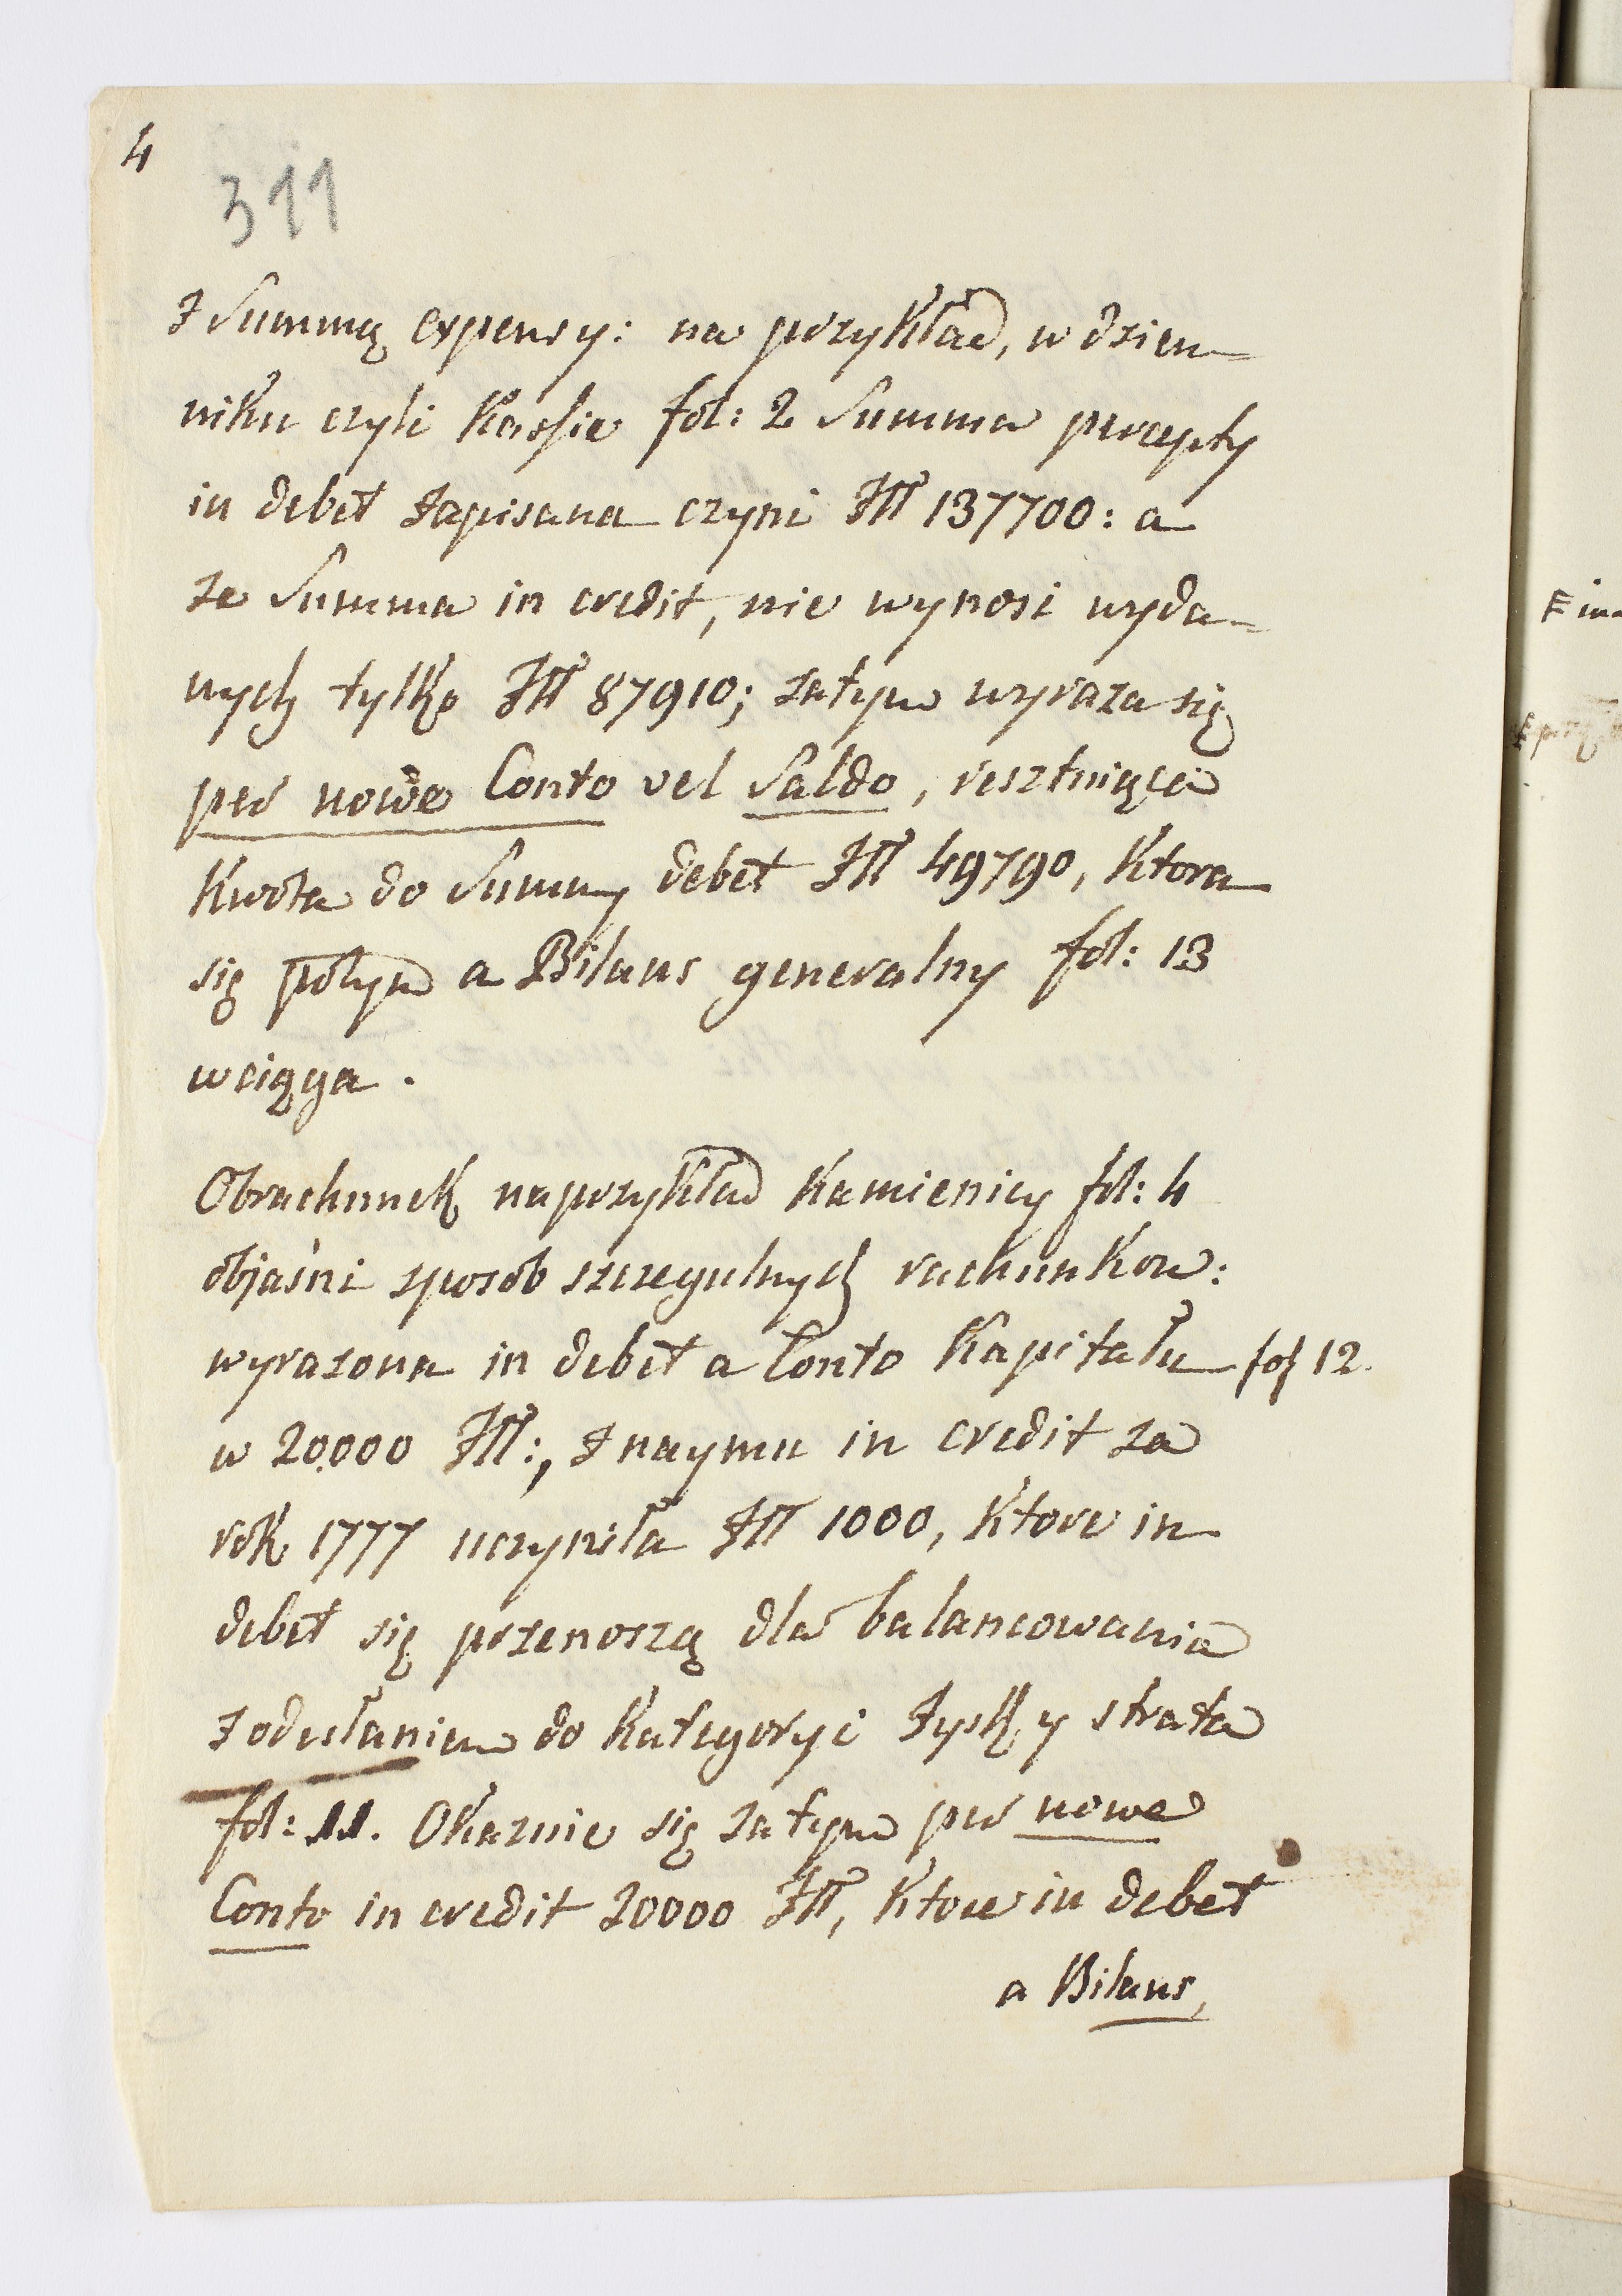 4
311
z Summą expensy: na przykład, w dzien=
niku czyli Kassie fol: 2 Summa percepty
in debet zapisana czyni Złł 137700: a
ze Summa in credit, nie wynosi wyda=
nych tylko Złł 87910; zatym wyraza się
per nowe Conto vel Saldo, resztuiąca
Kwota do Summy debet Złł 49790, Ktora
się potym a Bilans generalny fol: 13
wciąga.
Obrachunek naprzykład Kamienicy fol: 4
objaśni sposob szczegulnych rachunkow:
wyrazona in debet a Conto Kapitału fol 12.
w 20.000 Złł:, z naymu in credit za
rok 1777 uczyniła Złł 1000, Ktore in
debet się przenoszą dla balancowania
z odesłaniem do Kategoryi Zysk y strata
fol: 11. Okaznie się zatym per nowe
Conto in credit 20000 Złł, Ktore in debet
a Bilans,